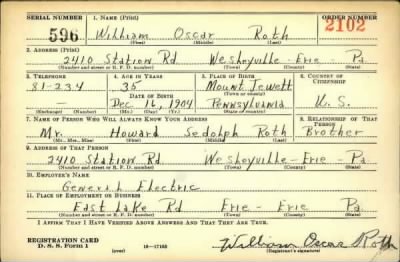 SERIAL NUMBER 1. NAME (Print) ORDER NUMBER
596 William Oscar Roth 2102
(First) (Middle) (Last)
2. ADDRESS (Print)
2410 Station Rd Wesleyville - Erie - Pa.
(Number and street or R. F. D. number) (Town) (County) (State)
3. TELEPHONE 4. AGE IN YEARS 5. PLACE OF BIRTH 6. COUNTRY OF CITIZENSHIP
81-234 35 Mount Jewett
DATE OF BIRTH (Town or county)
Dec 16, 1904 Pennsylvania U. S.
(Exchange) (Number) (Mo.) (Day) (Yr.) (State or country)
7. NAME OF PERSON WHO WILL ALWAYS KNOW YOUR ADDRESS 8. RELATIONSHIP OF THAT PERSON
Mr. Howard Sedolph Roth Brother
(Mr., Mrs., Miss) (First) (Middle) (Last)
9. ADDRESS OF THAT PERSON
2410 Station Rd Wesleyville - Erie - Pa.
(Number and street or R. F. D. number) (Town) (County) (State)
10. EMPLOYER'S NAME
General Electric
11. PLACE OF EMPLOYMENT OR BUSINESS
East Lake Rd Erie - Erie - Pa.
(Number and street or R. F. D. number) (Town) (County) (State)
I AFFIRM THAT I HAVE VERIFIED ABOVE ANSWERS AND THAT THEY ARE TRUE.
REGISTRATION CARD
D. S. S. Form 1 (over) 16-17105 William Oscar Roth
(Registrant's signature)